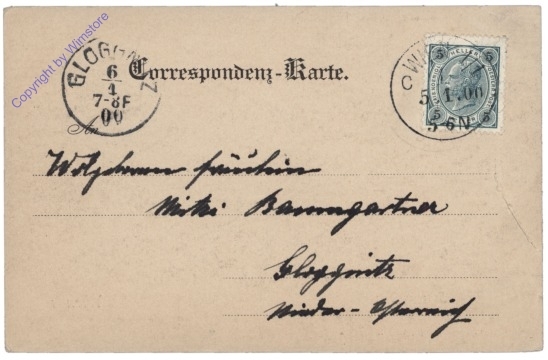 Copyright by Wimstore
GLOGGNITZ
6
1
7-8F
00
Correspondenz-Karte.
HELLER
5 5
5 1.00
5-6N
5 5
An
Wolgeboren Fräulein
Mitzi Baumgartner
Gloggnitz
Nieder-Österreich